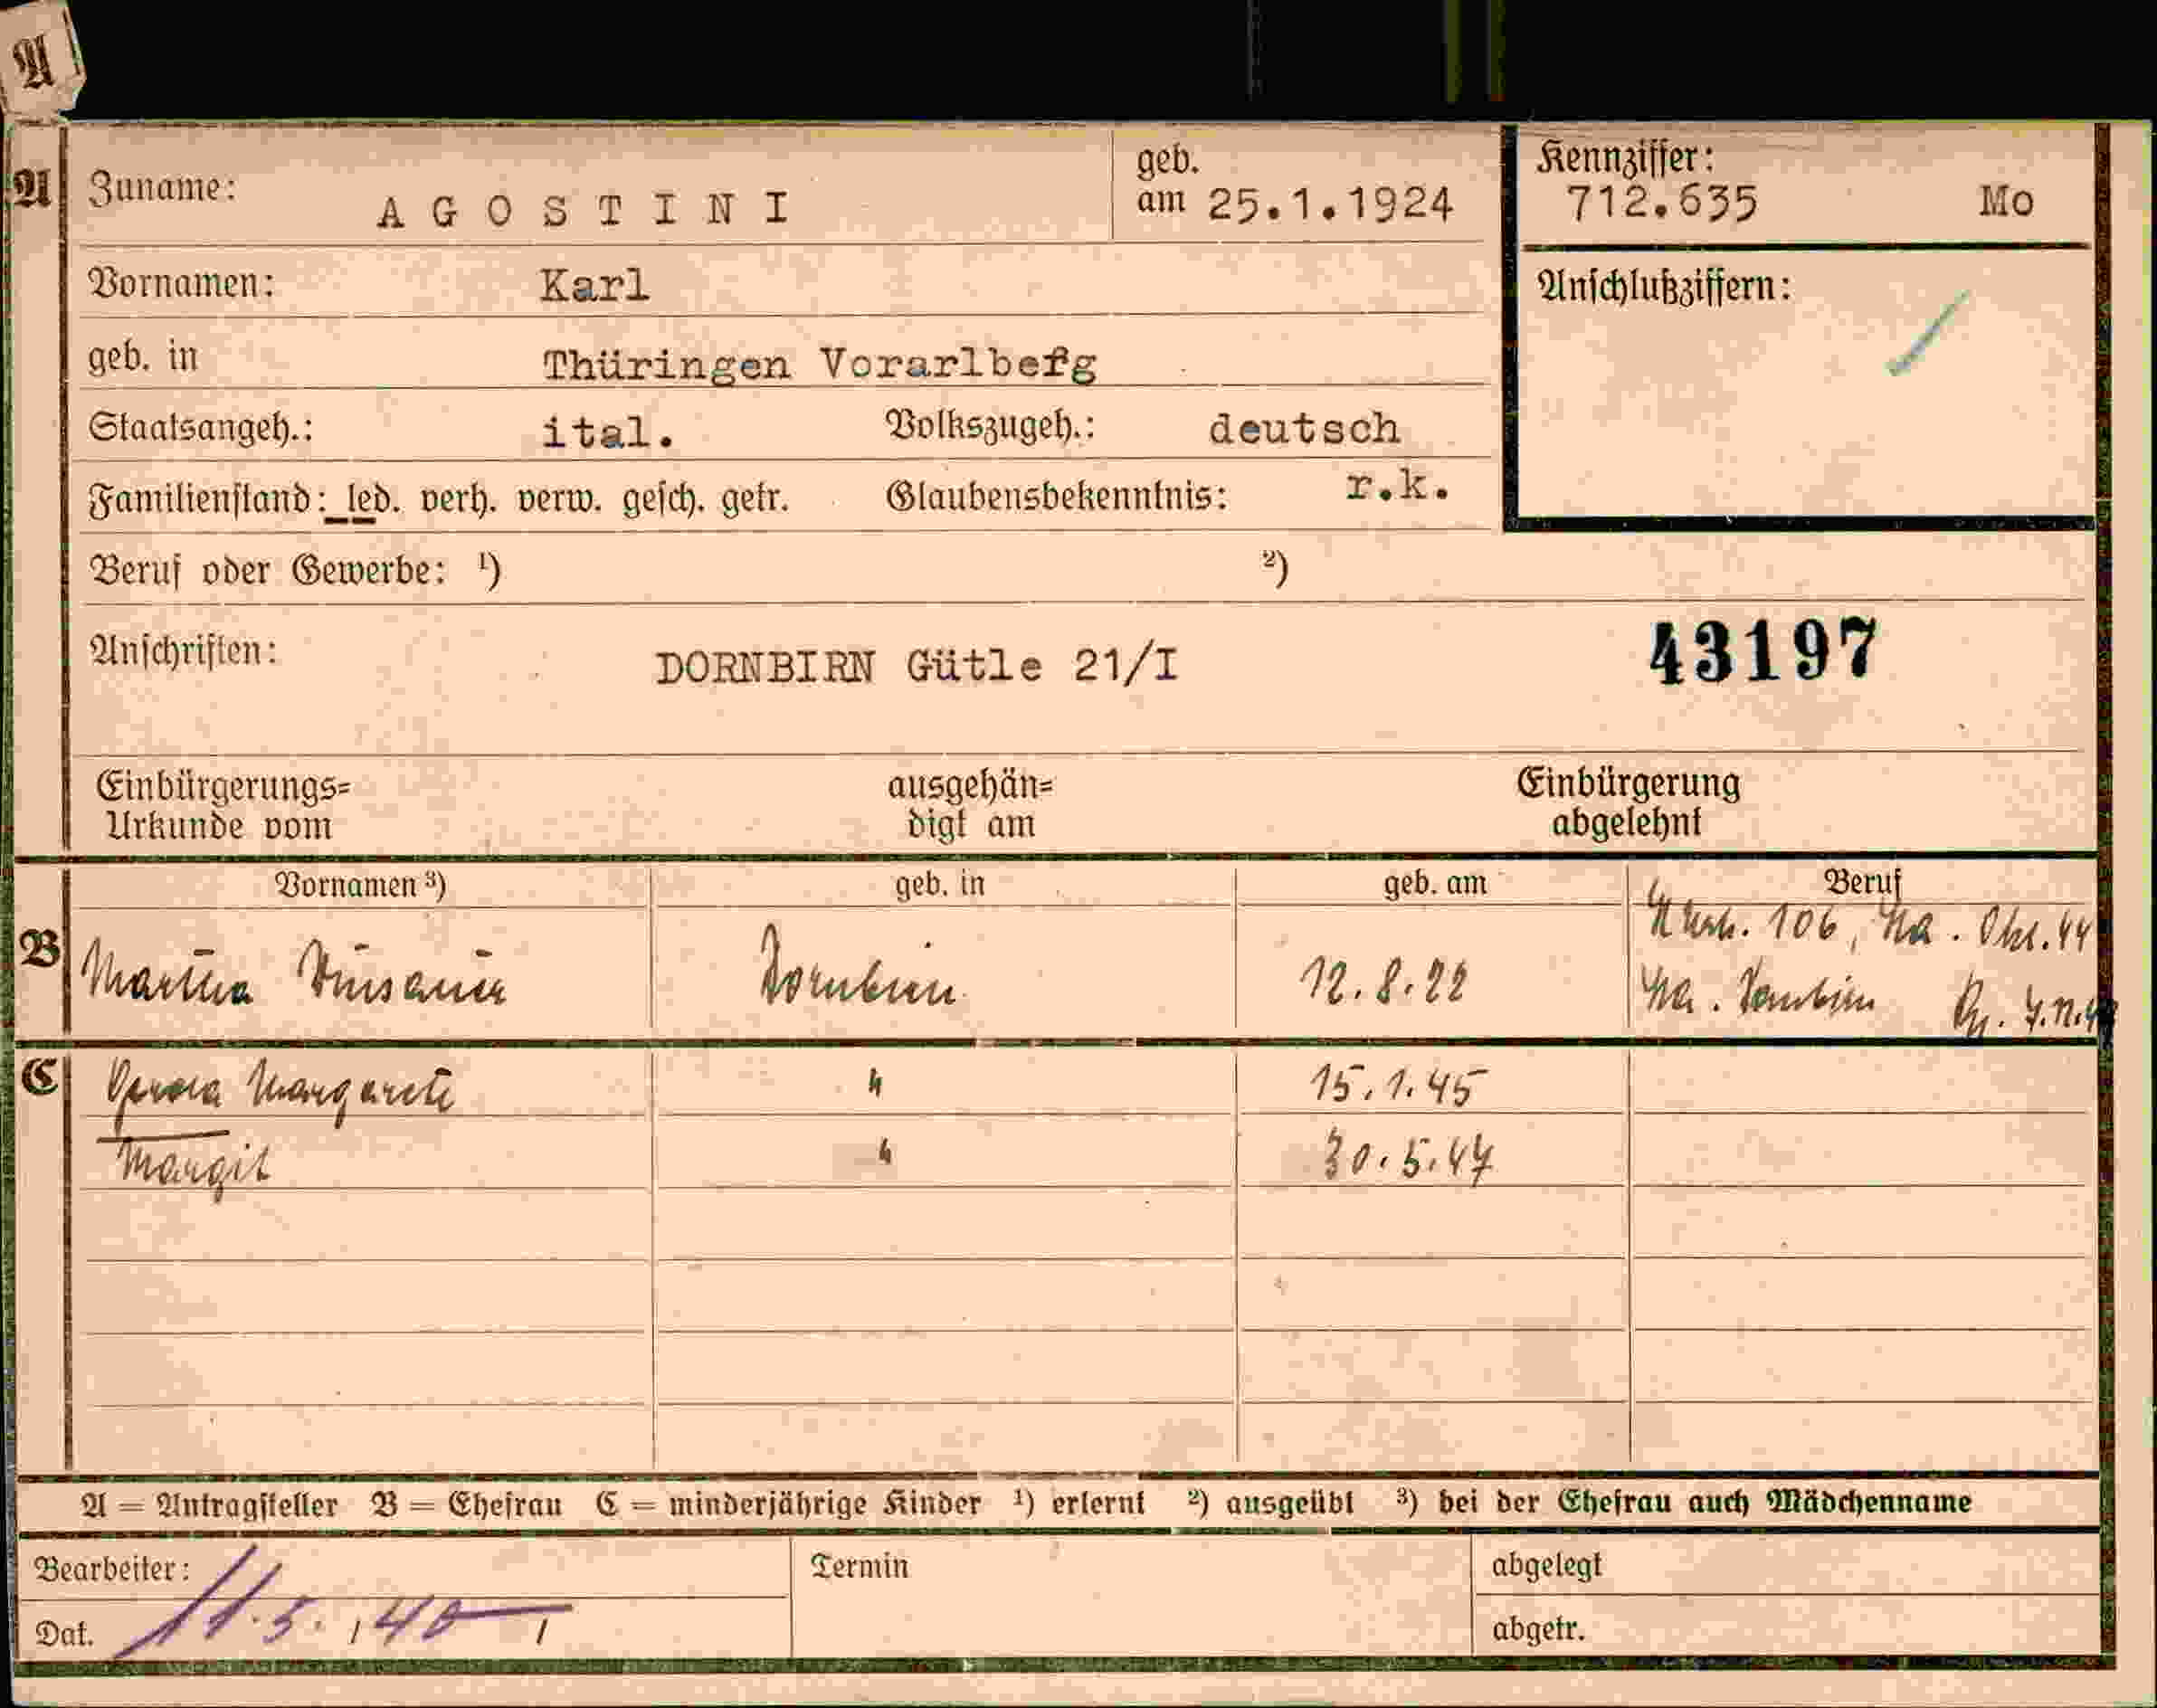 A
A
Zuname: AGOSTINI
geb.
am 25.1.1924
Kennziffer:
712.635 Mo
Vornamen: Karl
Anschlußziffern:
geb. in Thüringen Vorarlberg
Staatsangeh.: ital. Volkszugeh.: deutsch
Familienstand: led. verh. verw. gesch. getr. Glaubensbekenntnis: r.k.
Beruf oder Gewerbe: ¹) ²)
Anschriften: DORNBIRN Gütle 21/I 43197
Einbürgerungs=
Urkunde vom
ausgehän=
digt am
Einbürgerung
abgelehnt
Vornamen ³) geb. in geb. am Beruf
106, Okt. 44
B Dornbirn 12.8.22 Dornbirn
C Margarete " 15.1.45
Margit " 30.5.47
A = Antragsteller B = Ehefrau C = minderjährige Kinder ¹) erlernt ²) ausgeübt ³) bei der Ehefrau auch Mädchenname
Bearbeiter: Termin abgelegt
Dat. 11.5.40 abgetr.